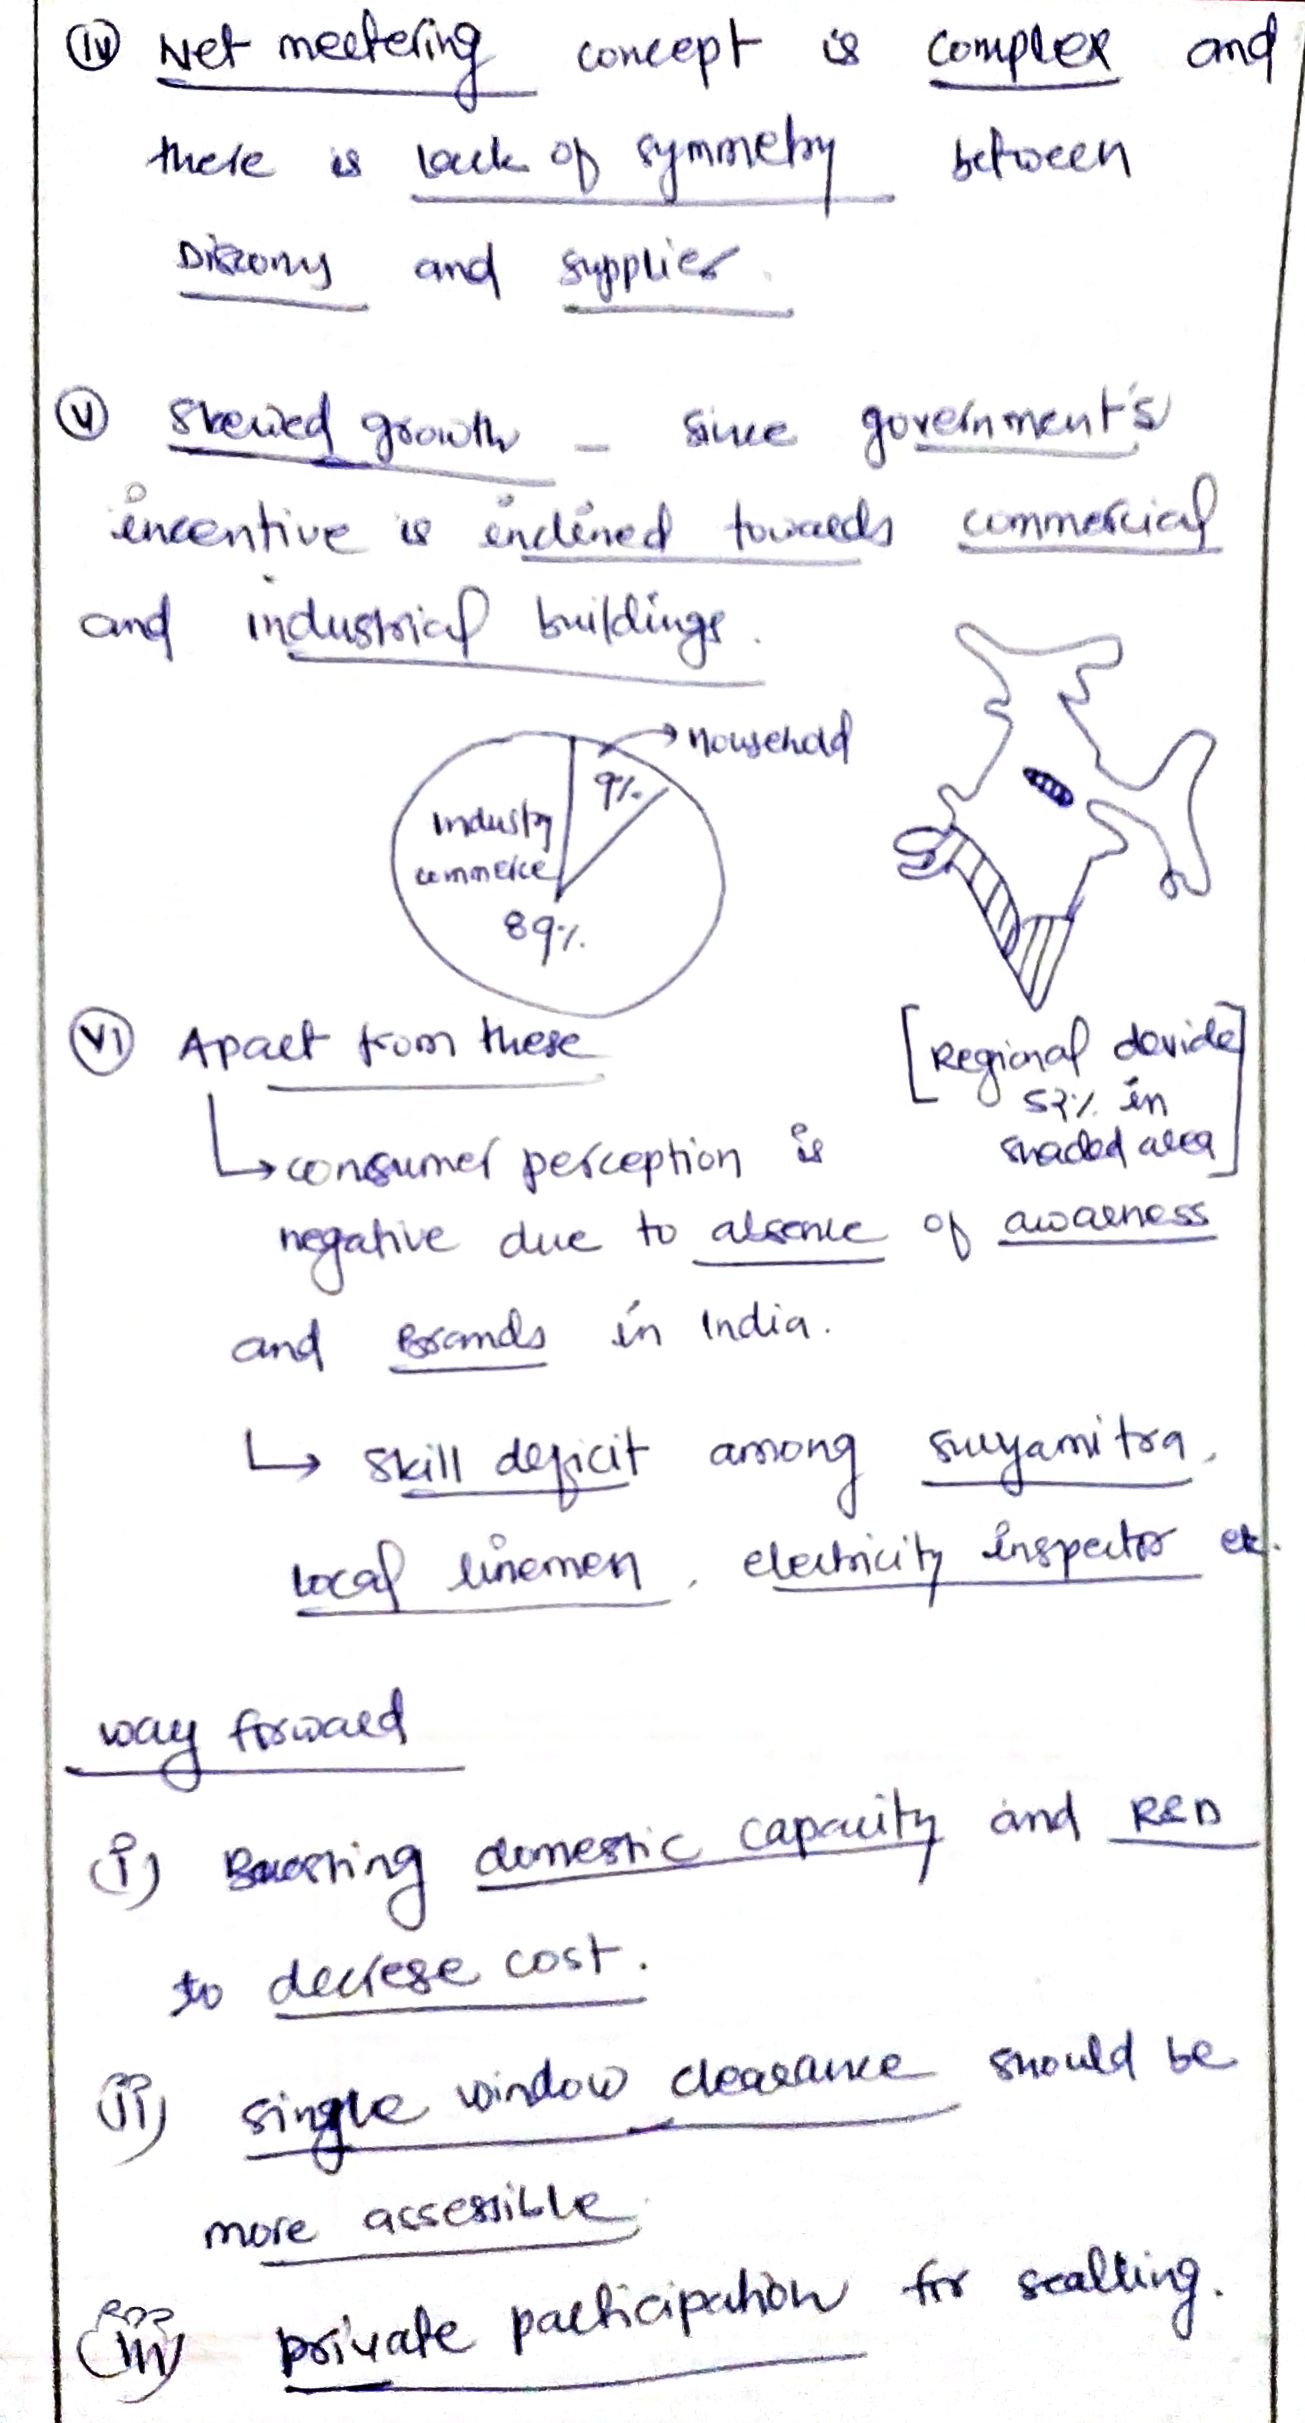 (iv) Net meetering concept is complex and
there is lack of symmetry between
Discoms and supplier.
(v) Skewed growth - since government's
incentive is inclined towards commercial
and industrial buildings.
→ household
9%
Industry
commerce
89%
(vi) Apart from these
[Regional devide
53% in
shaded area]
↳ consumer perception is
negative due to absence of awarness
and Brands in India.
↳ skill deficit among suryamitra,
local linemen, electricity inspector etc.
way forward
(i) Boosting domestic capacity and R&D
to decrese cost.
(ii) single window clearance should be
more assessible.
(iii) private participation for scalling.